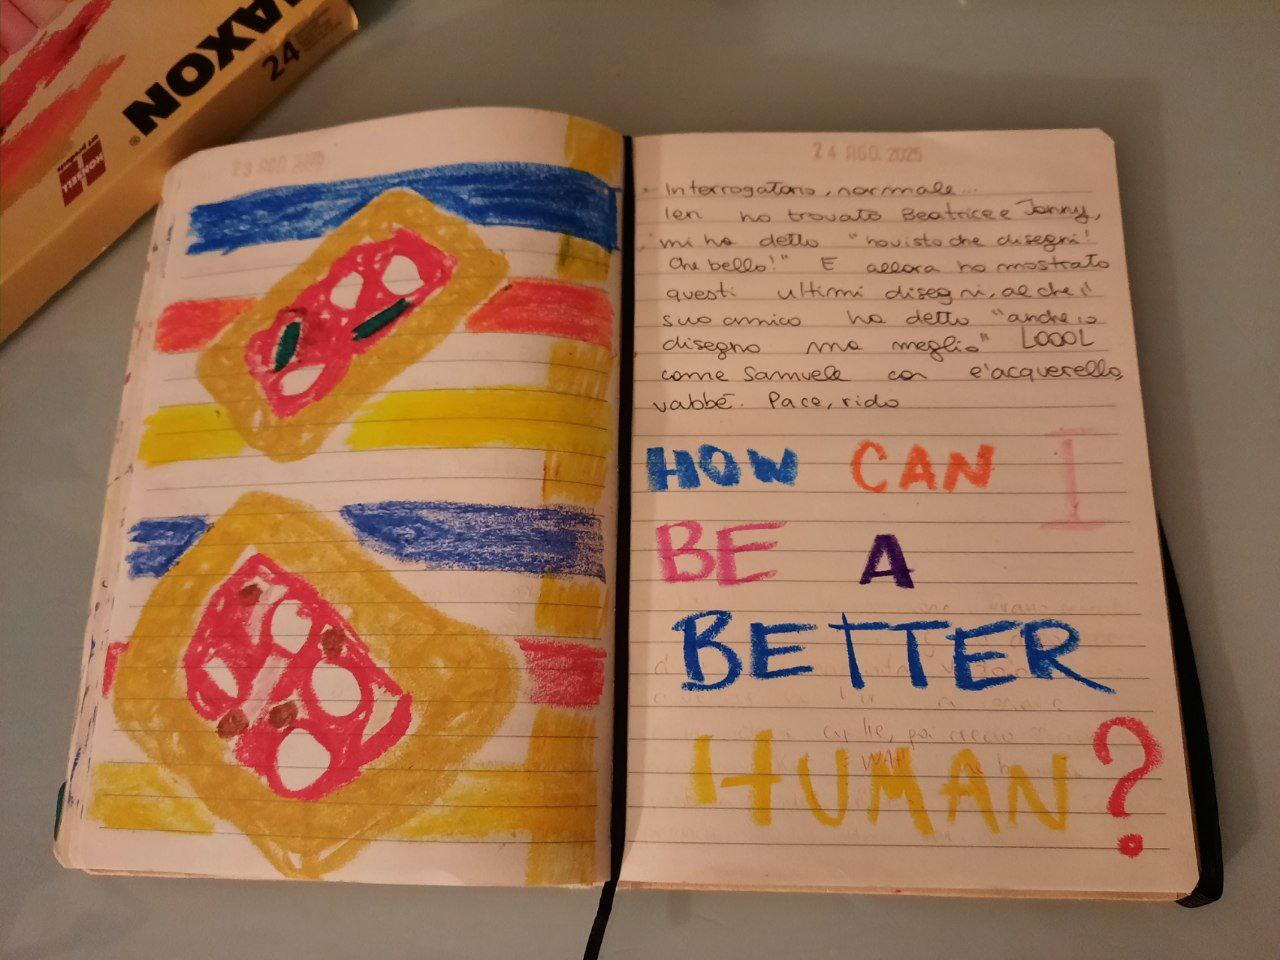 MAXON
24
HONSELL
23 AGO 2025
24 AGO. 2025
Interrogatorio, normale...
Ieri ho trovato Beatrice e Jonny,
mi ha detto "ho visto che disegni!
Che bello!" E allora ho mostrato
questi ultimi disegni, al che il
suo amico ha detto "anche io
disegno ma meglio" LOOOL
come Samuele con l'acquerello,
vabbé. Pace, rido
HOW CAN I
BE A
BETTER
HUMAN?